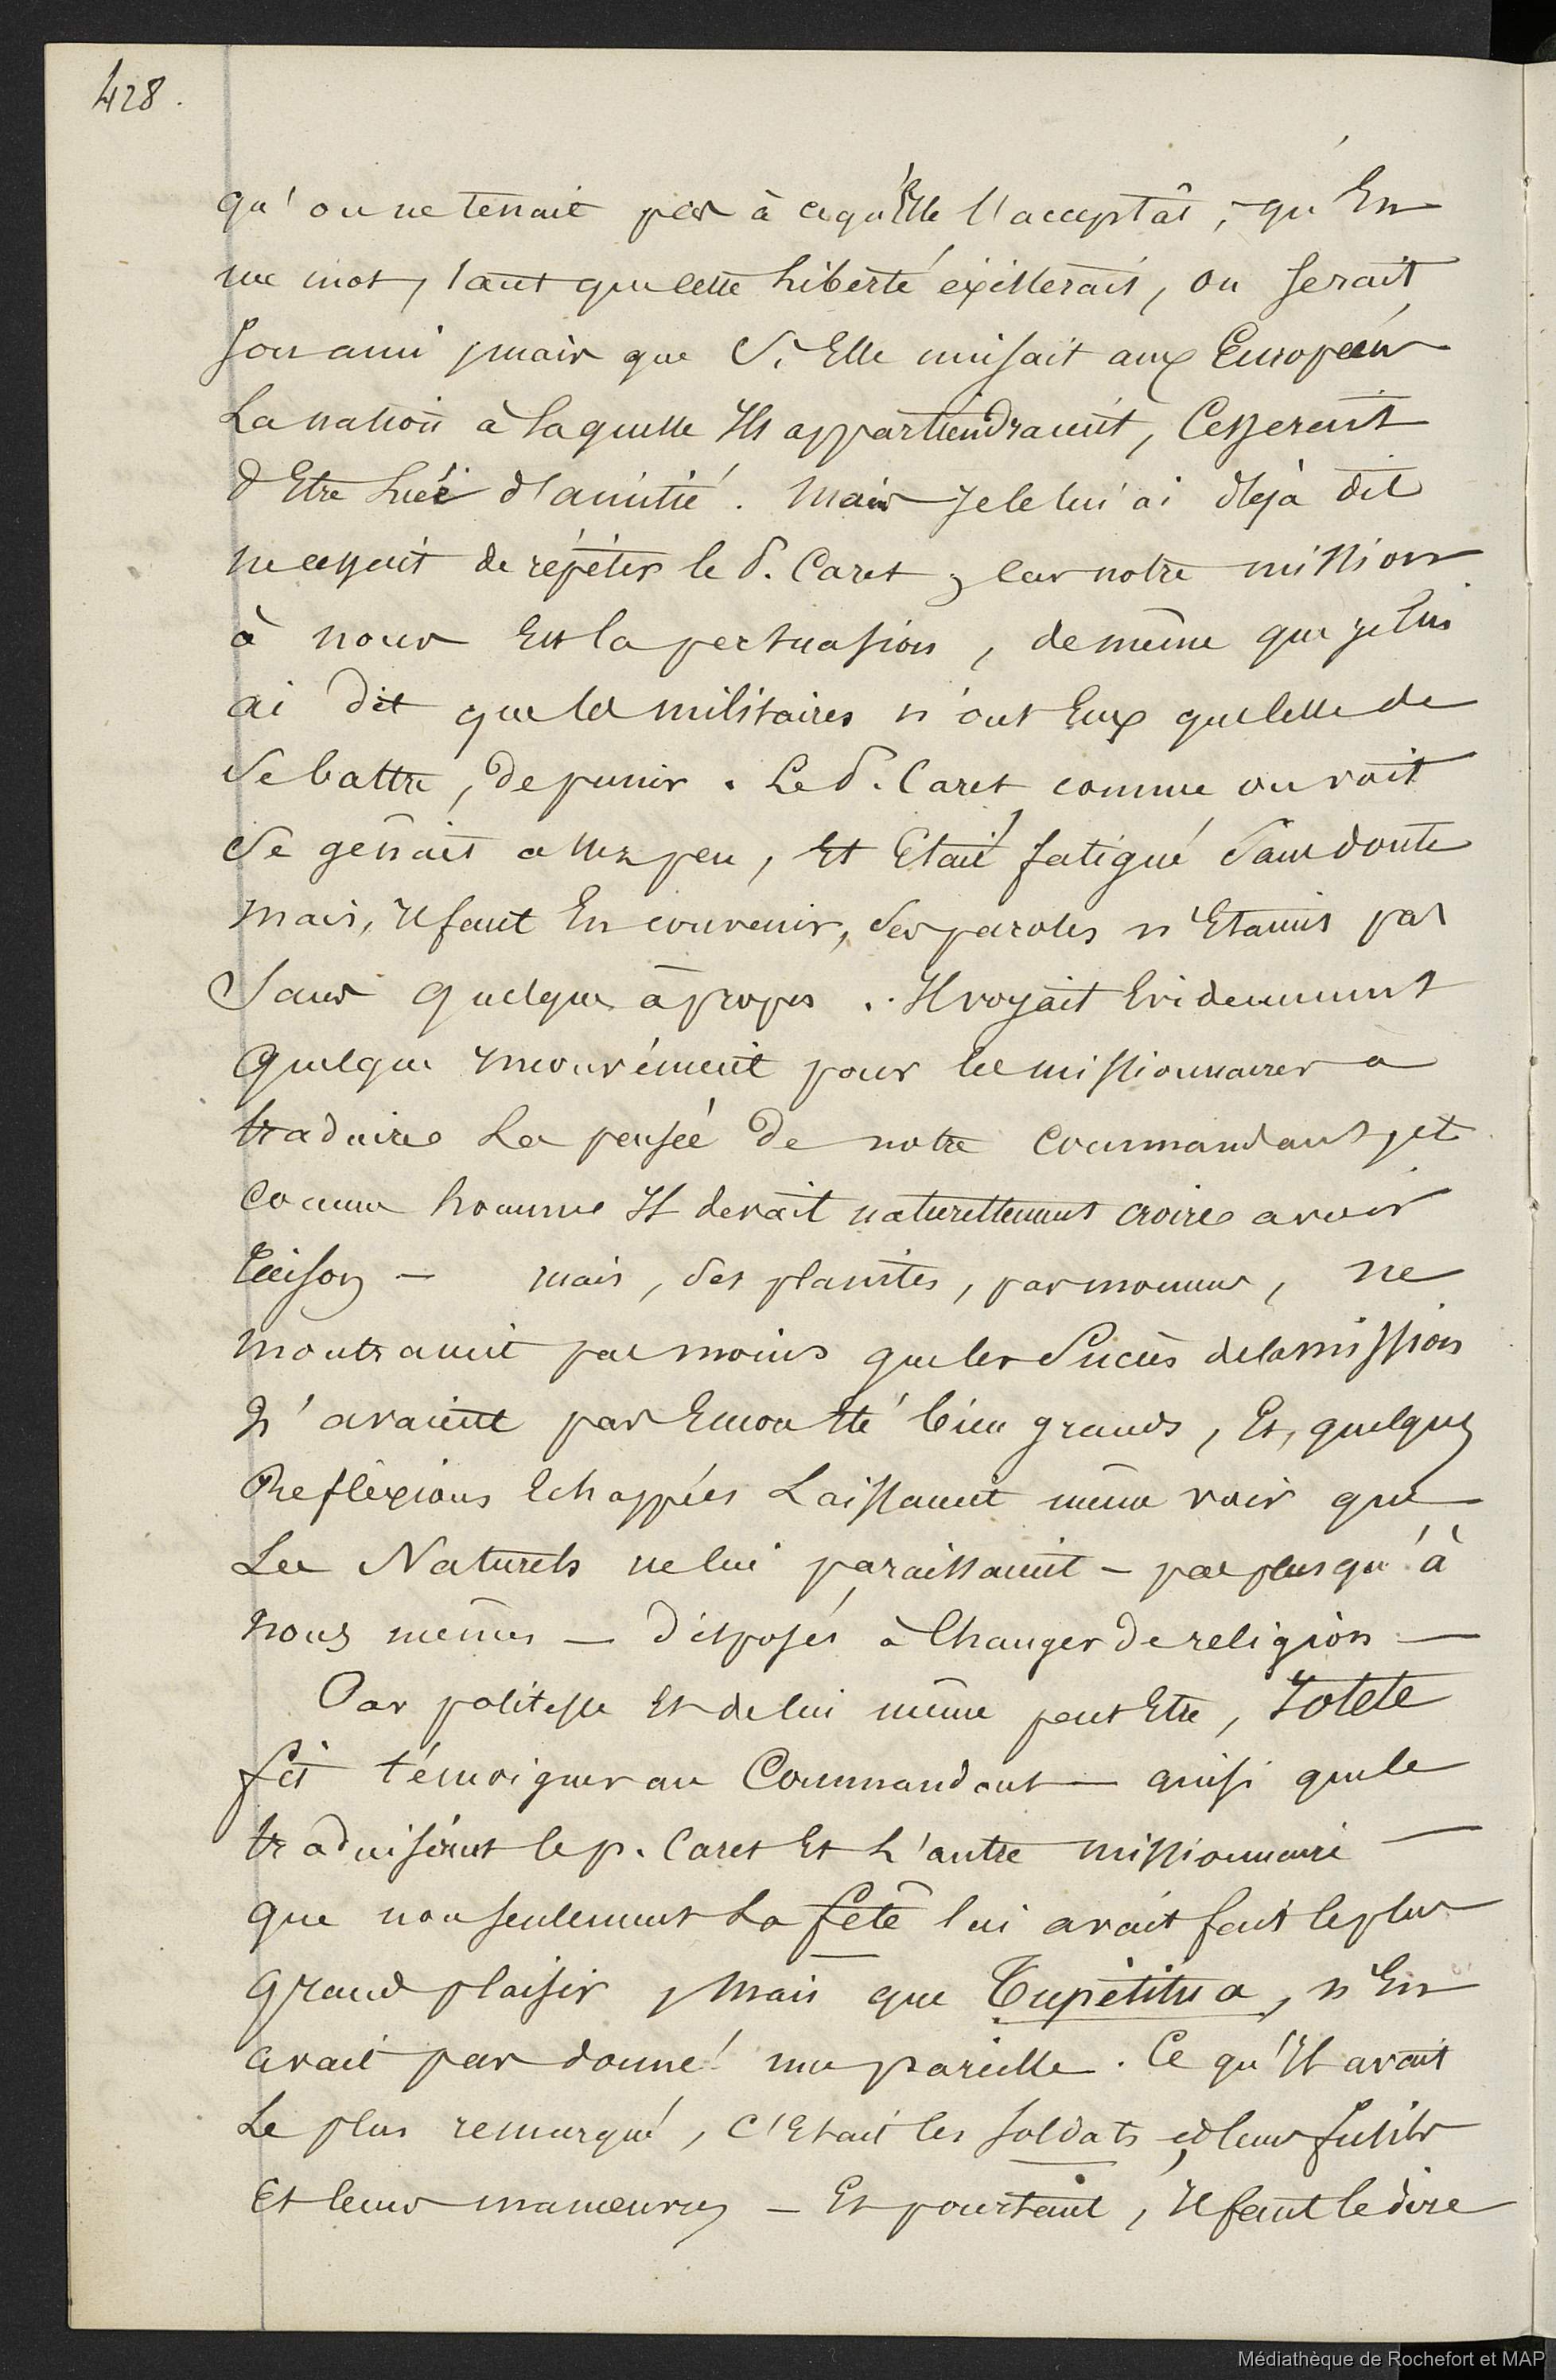 428.
qu'on ne tenait pas à ce qu'Elle l'acceptât, qu'En
un mot, tant que cette liberté existerait, on serait
son ami, mais que si Elle nuisait aux Européens
La nation à laquelle Ils appartiendraient, Cesserait
d'Etre liée d'amitié. Mais je le lui ai déjà dit
ne cessait de répéter le P. Caret, car notre mission
à nous Est la persuasion, de même que je lui
ai dit que les militaires n'ont Eux que celle de
se battre, de punir. Le P. Caret comme on voit
se gênait assez peu, Et Etait fatigué sans doute
mais, Il faut En convenir, ses paroles n'Etaient pas
Sans quelque àpropos. Il voyait Evidemment
quelque mouvement pour les missionnaires a
traduire La pensée de notre Commandant, et
comme homme Il devait naturellement croire avoir
raison — mais, ses plaintes, par moment, ne
montraient pas moins que les Succès de la mission
n'avaient pas Encore été bien grands, Et, quelques
Reflexions Echappées Laissaient même voir que
Les Naturels ne lui paraissaient — pas plus qu'à
nous mêmes — disposés à Changer de religion —
Par politesse Et de lui même peut Etre, Iotete
fit témoigner au Commandant — ainsi que le
traduisirent le p. Caret Et L'autre missionnaire —
que non seulement La fête lui avait fait le plus
grand plaisir, Mais que Tupetitua, n'En
avait pas donné une pareille. Ce qu'Il avait
Le plus remarqué, C'Etait les soldats, leurs fusils
Et leurs manœuvres — Et pourtant, Il faut le dire
Médiathèque de Rochefort et MAP